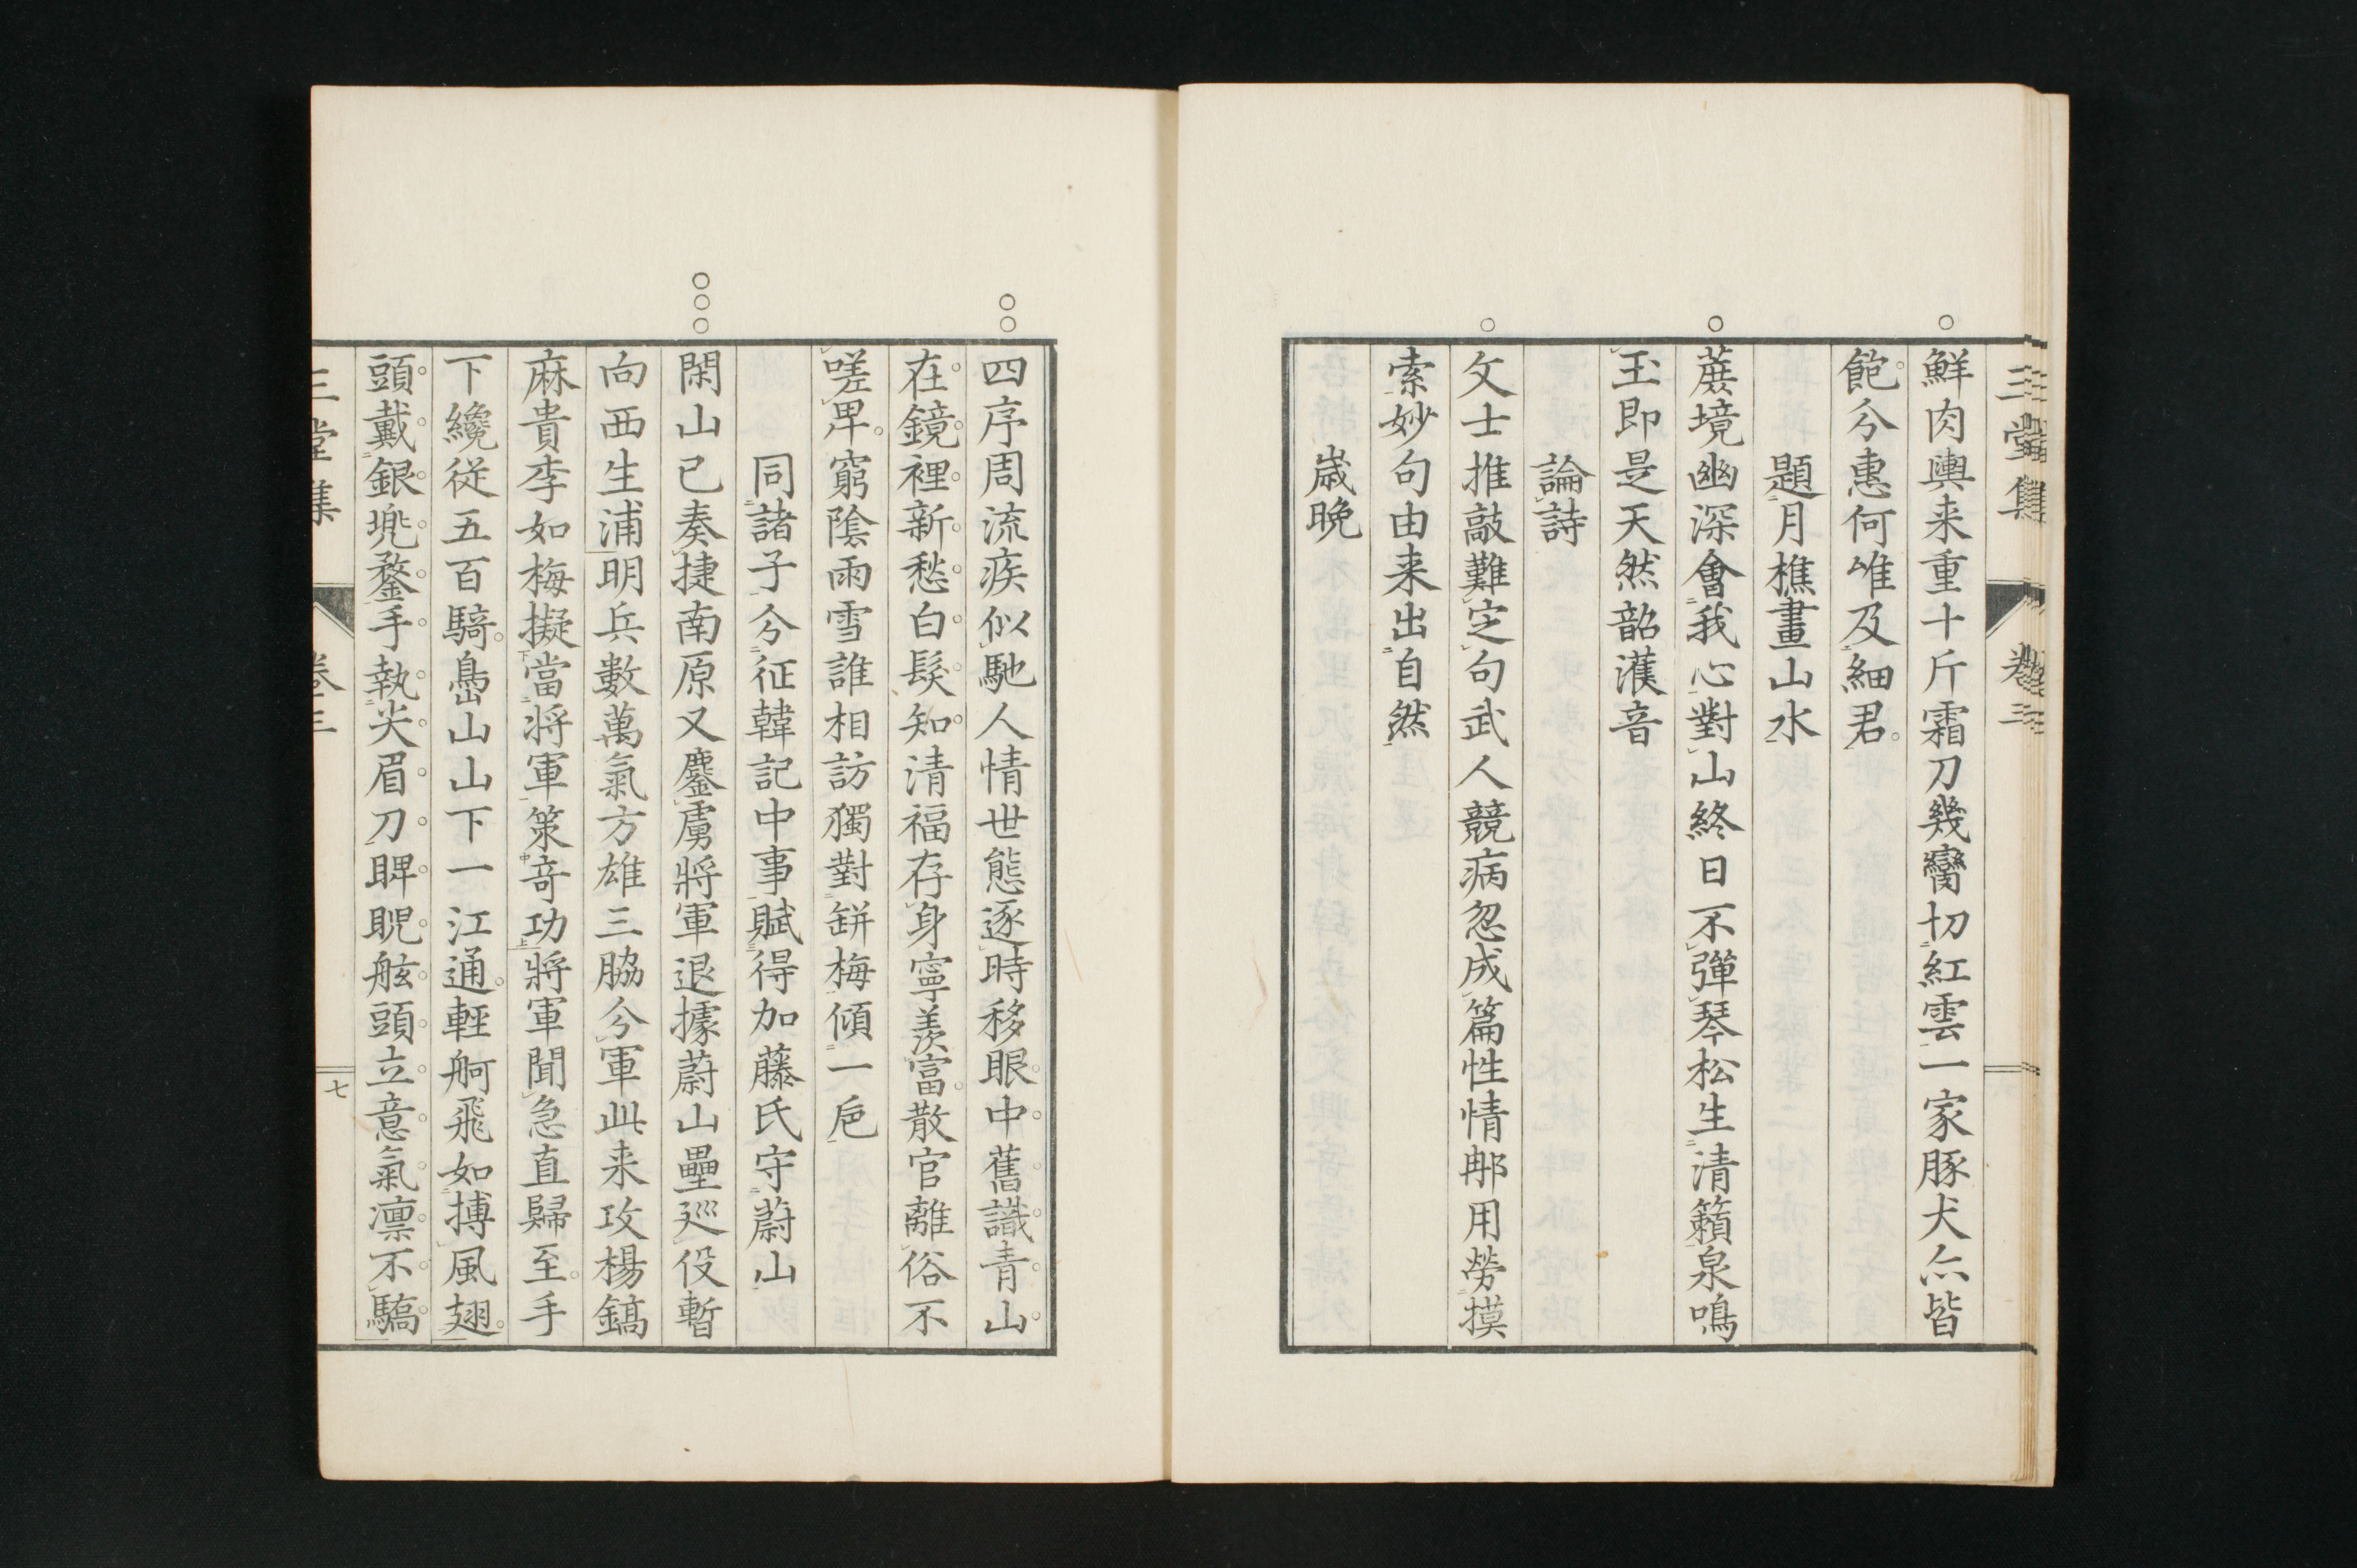 三堂集 卷三
鮮肉輿来重十斤霜刀幾臠切紅雲一家豚犬亦皆
飽分惠何唯及細君
題月樵畫山水
蔗境幽深會我心對山終日不彈琴松生清籟泉鳴
玉即是天然韶濩音
論詩
文士推敲難定句武人競病忽成篇性情那用勞摸
索妙句由来出自然
歲晚
四序周流疾似馳人情世態逐時移眼中舊識青山
在鏡裡新愁白髮知清福存身寧羨富散官離俗不
嗟卑窮陰雨雪誰相訪獨對缾梅傾一卮
同諸子分征韓記中事賦得加藤氏守蔚山
閑山已奏捷南原又鏖虜將軍退據蔚山壘巡役暫
向西生浦明兵數萬氣方雄三脇分軍此来攻楊鎬
麻貴李如梅擬當將軍策竒功將軍聞急直歸至手
下纔從五百騎島山山下一江通輕舸飛如搏風翅
頭戴銀兠鍪手執尖眉刀睥睨舷頭立意氣凛不驕
三堂集 卷三 七